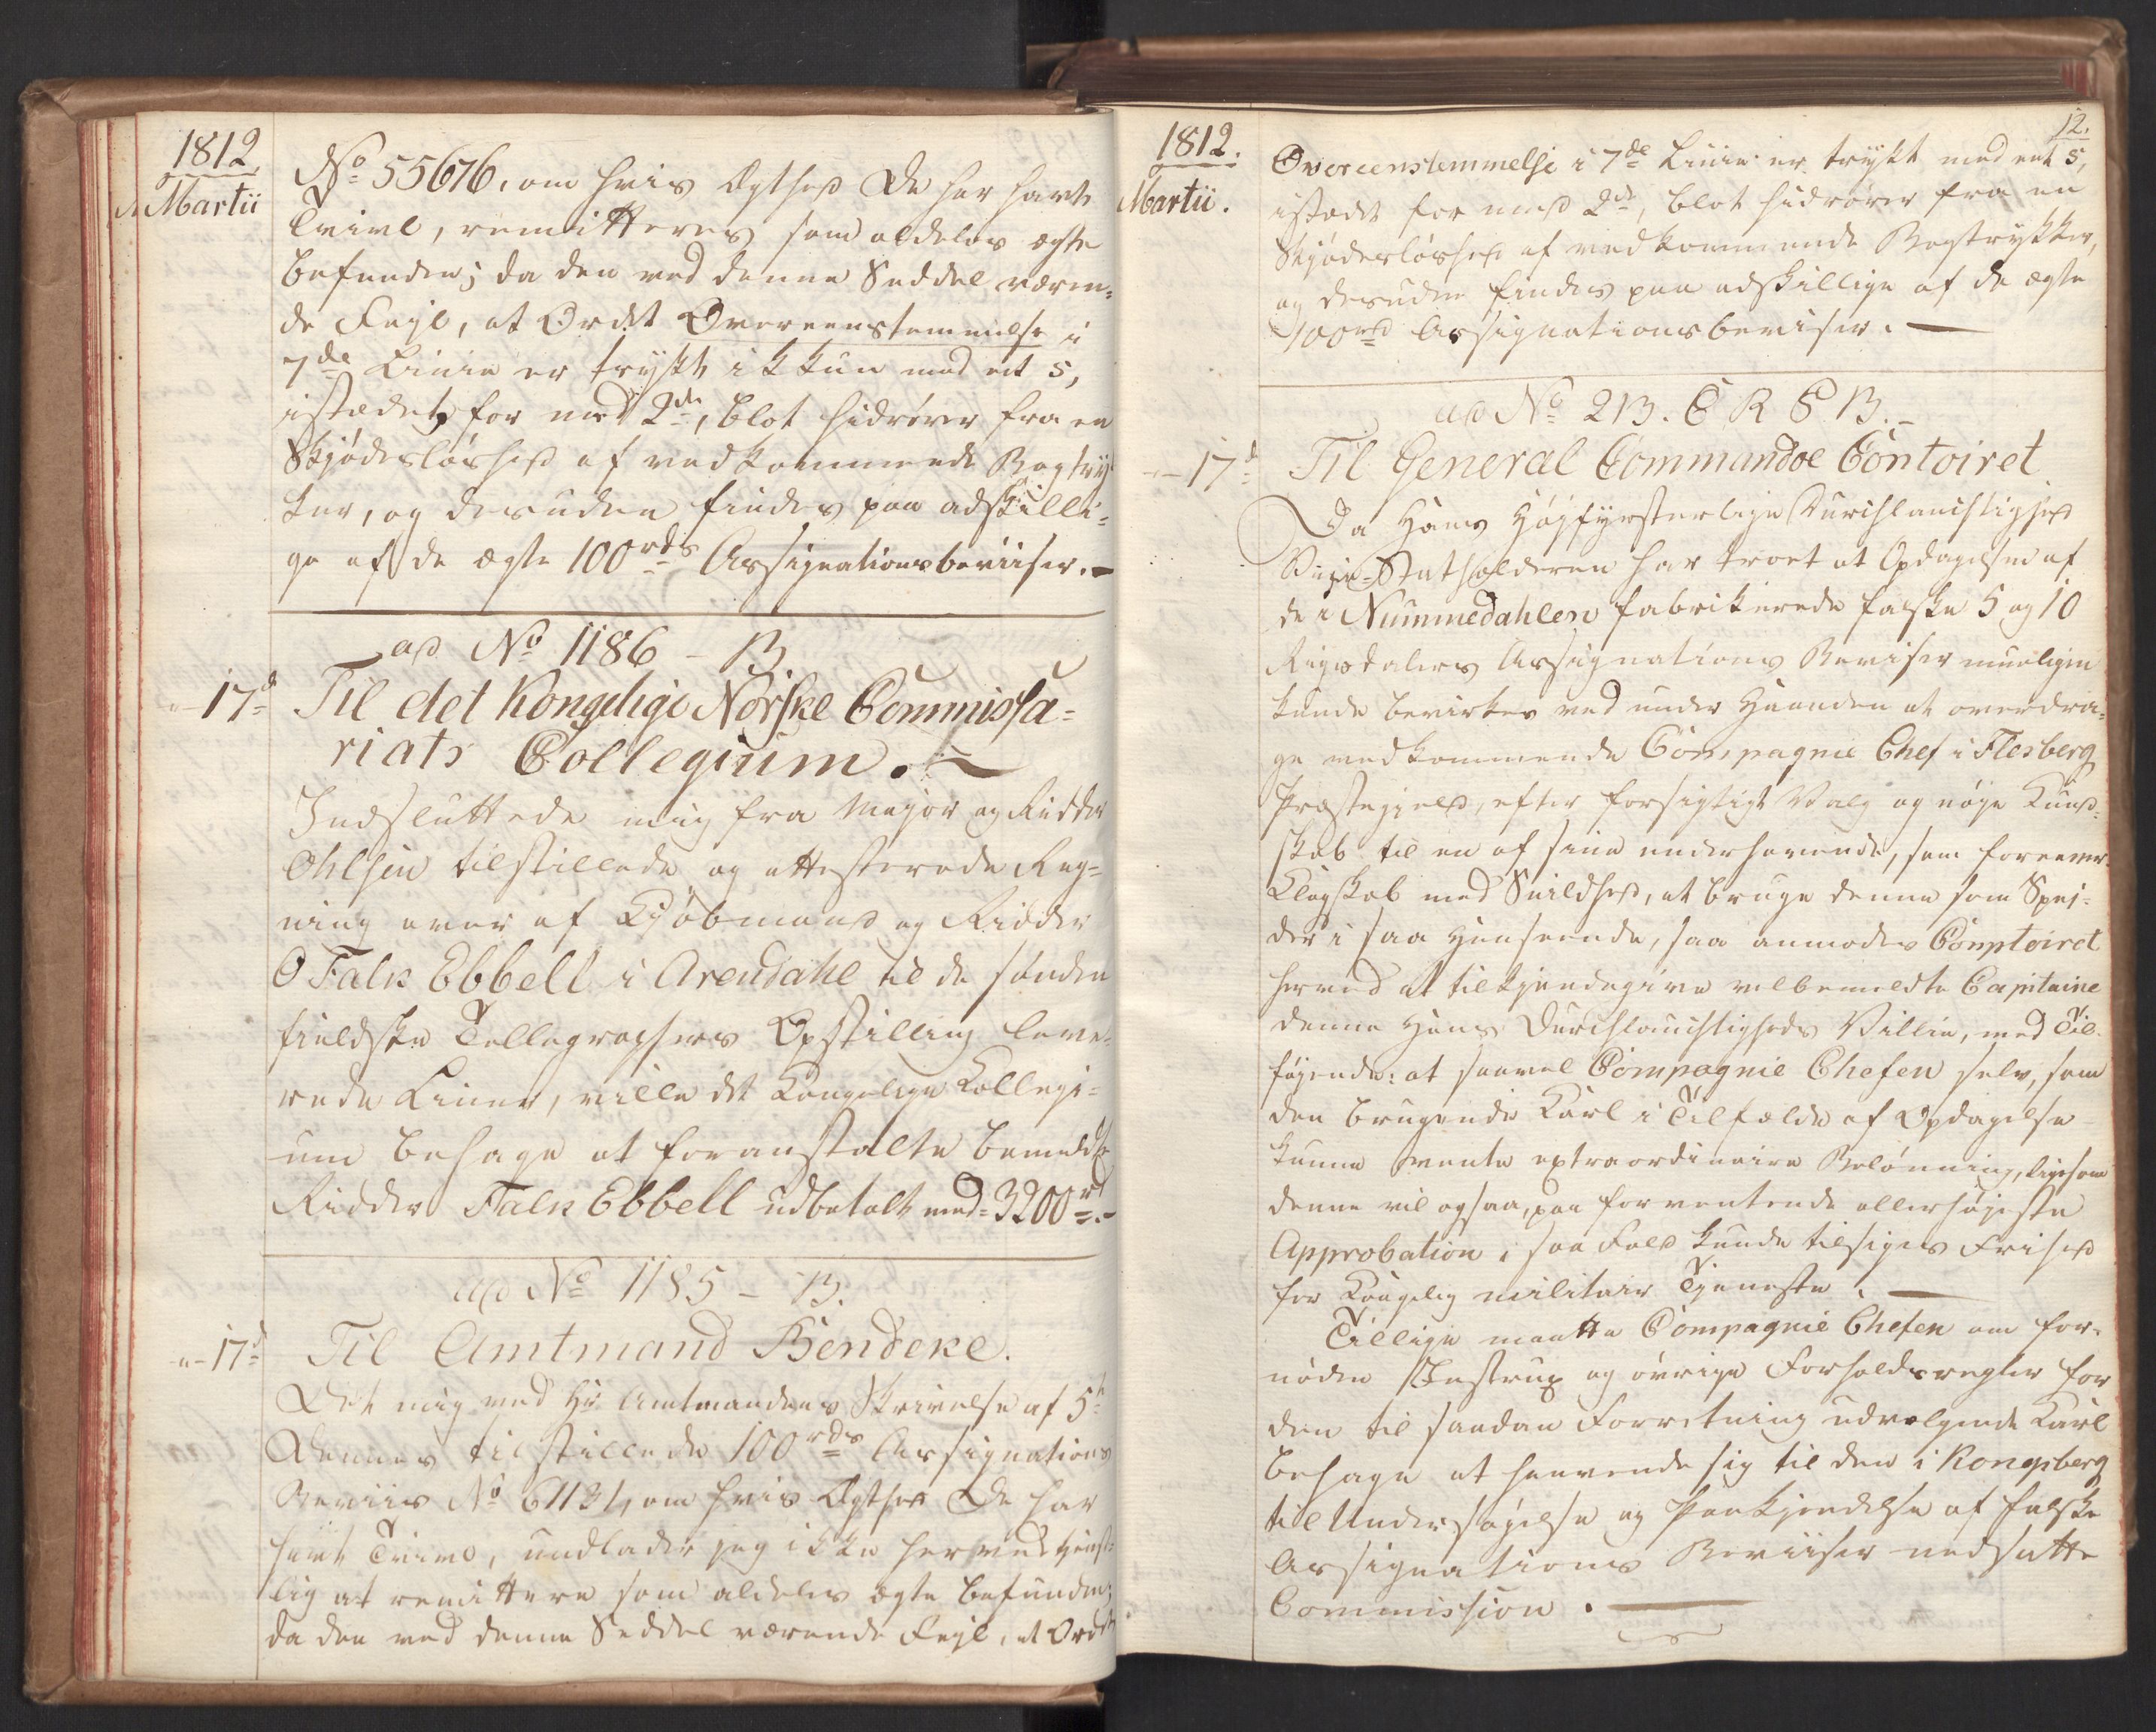 1812.
Martii
No 55676, om hvis Ægthed De har havt
Tvivl, remitteres som aldeles ægte
befunden; da den ved denne Seddel væren-
de Fejl, at Ordet Overeenstemmelse i
7de Linie er trykt ikkun med eet s,
istædet for med 2de, blot hidrører fra en
Skjødesløshed af vedkommende Bogtryk
ker, og desuden findes paa adskilli-
ge af de ægte 100rds Assignationsbeviiser. -
ad No 1186 - B.
- 17d
Til det Kongelige Norske Commissa-
riats Collegium.
Indsluttede mig fra Major og Ridder
Ohlsen tilstillede og attesterede Reg-
ning over af Kjøbmand og Ridder
O Falk Ebbell i Arendahl til de sønden
fieldske Tellegraphers Opstilling leve-
rede Liner, ville det Kongelige Collegi-
um behage at foranstalte bemeldte
Ridder Falk Ebbell udbetalt med 3200rd. -
ad No 1185 - B.
- 17d
Til Amtmand Bendeke.
Det mig med Hr Amtmandens Skrivelse af 5t
Dennes tilstillede 100rds Assignations
Beviis No 61131, om hvis Ægthed De har
havt Tvivl, undlader jeg ikke herved tjenst-
lig at remittere som aldeles ægte befunden;
da den ved denne Seddel værende Fejl, at Ordet
12.
1812.
Martii.
Overeenstemmelse i 7de Linie er trykt med eet s,
istædet for med 2de, blot hidrører fra en
Skjødesløshed af vedkommende Bogtrykker,
og desuden findes paa adskillige af de ægte
100rd Assignationsbeviser. -
ad No 213. C R S B. -
- 17d
Til General Commandoe Contoiret
Da Hans Højfyrstelige Durchlauchtighed
Vice-Statholderen har troet at Opdagelsen af
de i Nummedahlen fabrikerede falske 5 og 10
Rigsdalers Assignations Beviser mueligen
kunde bevirkes ved under Haanden at overdra-
ge vedkommende Compagnie Chef i Flesberg
Præstegjeld, efter forsigtigt Valg og nøje Kund-
skab til en af sine underhavende, som foreener
Klogskab med Snildhed, at bruge denne som Spej-
der i saa Henseende, saa anmodes Comptoiret
herved at tilkjendegive velbemeldte Capitaine
denne Hans Durchlauchtigheds Villie, med Til-
føjende: at saavel Compagnie Chefen selv, som
den brugende Karl i Tilfælde af Opdagelse
kunne vente extraordinaire Belønning, ligesom
denne vil ogsaa, paa forventende allerhøjeste
Approbation i saa Fald kunde tilsiges Frihed
for Kongelig militair Tjeneste. -
Tillige maatte Compagnie Chefen om for-
nøden Instrux og øvrige Forholdsregler for
den til saadan Forretning udvælgende Karl
behage at henvende sig til den i Kongsberg
til Undersøgelse og Paakjendelse af falske
Assignations Beviiser nedsatte
Commission. -